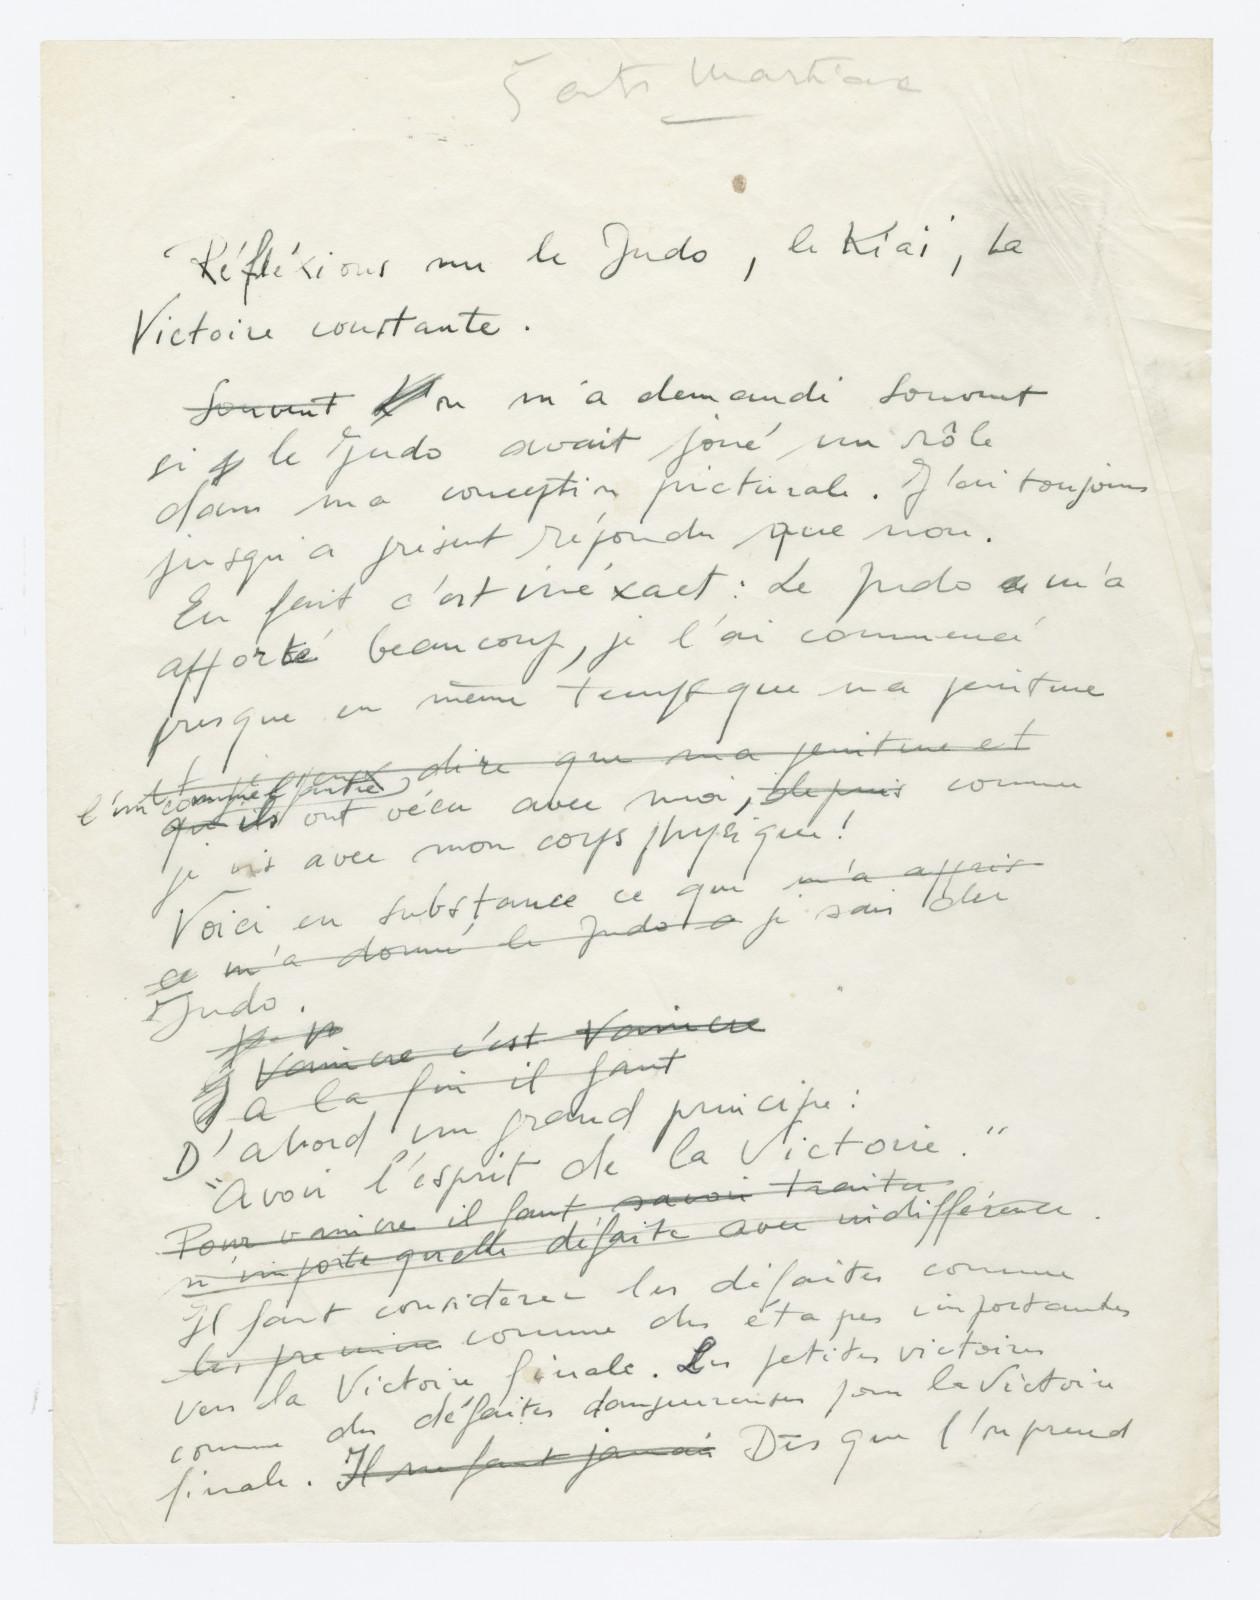 5 arts Martiaux
Réfléxions sur le Judo, le Kiai, La
Victoire constante.
Souvent On m'a demandé souvent
si le Judo avait joué un rôle
dans ma conception picturale. J'ai toujours
jusqu'a présent répondu que non.
En fait c'est inéxact : Le Judo m'a
apporté beaucoup, je l'ai commencé
presque en même temps que ma peinture
je peux dire que ma peinture et
l'un comme l'autre
qu'ils ont vécu avec moi, depuis comme
je vis avec mon corps physique !
Voici en substance ce que m'a appris
ce m'a donné le Judo a je sais du
Judo.
Vaincre c'est Vaincre
a la fin il faut
D'abord un grand principe :
"Avoir l'esprit de la Victoire."
Pour vaincre il faut savoir traiter
n'importe quelle défaite avec indifférence.
Il faut considérer les défaites comme
les premiers comme des étapes importantes
vers la Victoire finale. Les petites victoires
comme des défaites dangeureuses pour la Victoire
finale. Il ne faut jamais Dès que l'on prend